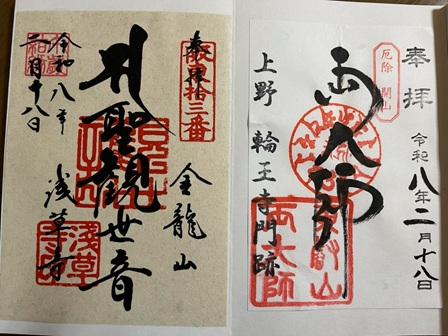 奉拝
令和八年二月十八日
厄除 開山
両大師
上野 輪王寺門跡
東叡山
両大師
奉拝
坂東拾三番
金龍山
聖観世音
令和八年
二月十八日
浅草寺
浅草寺